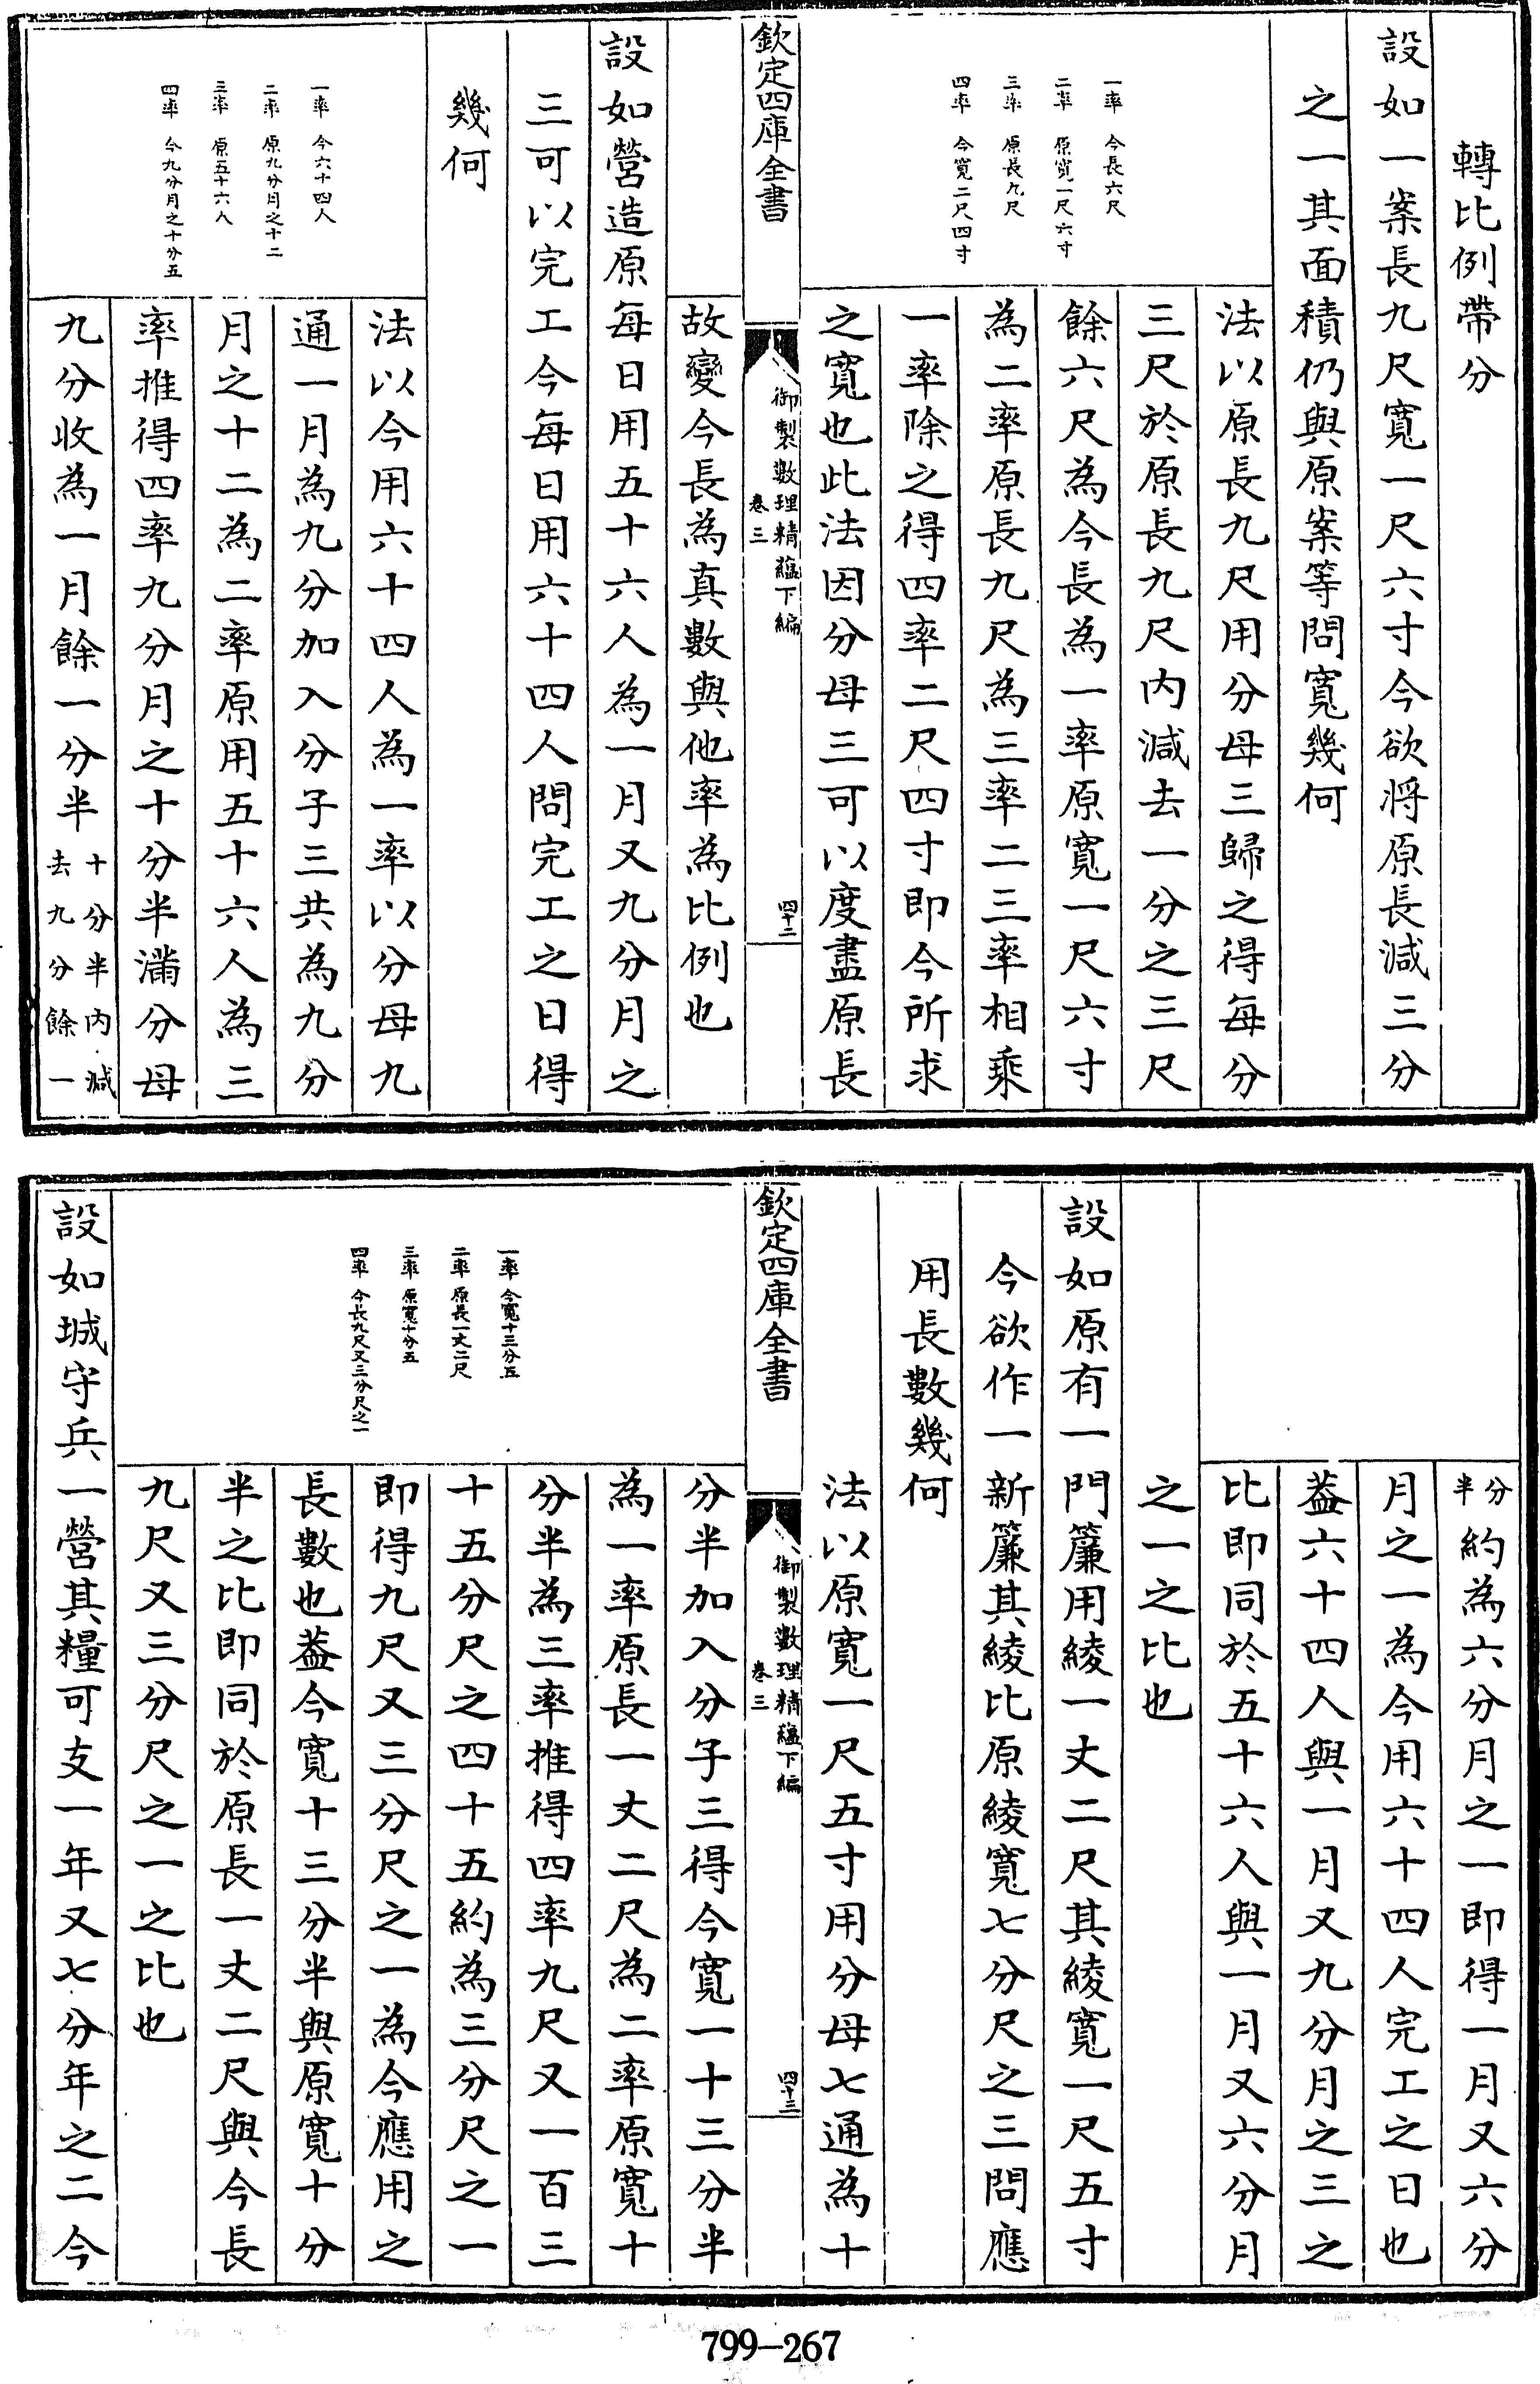 轉比例帶分
設如一案長九尺寬一尺六寸今欲將原長減三分
之一其面積仍與原案等問寬幾何
一率 今長六尺
二率 原寬一尺六寸
三率 原長九尺
四率 今寬二尺四寸
法以原長九尺用分母三歸之得每分
三尺於原長九尺內減去一分之三尺
餘六尺為今長為一率原寬一尺六寸
為二率原長九尺為三率二三率相乘
一率除之得四率二尺四寸即今所求
之寬也此法因分母三可以度盡原長
欽定四庫全書
御製數理精蘊下編
卷三
四十二
故變今長為真數與他率為比例也
設如營造原每日用五十六人為一月又九分月之
三可以完工今每日用六十四人問完工之日得
幾何
一率 今六十四人
二率 原九分月之十二
三率 原五十六人
四率 今九分月之十分五
法以今用六十四人為一率以分母九
通一月為九分加入分子三共為九分
月之十二為二率原用五十六人為三
率推得四率九分月之十分半滿分母
九分收為一月餘一分半十分半內減
去九分餘一
分
半約為六分月之一即得一月又六分
月之一為今用六十四人完工之日也
葢六十四人與一月又九分月之三之
比即同於五十六人與一月又六分月
之一之比也
設如原有一門簾用綾一丈二尺其綾寬一尺五寸
今欲作一新簾其綾比原綾寬七分尺之三問應
用長數幾何
法以原寬一尺五寸用分母七通為十
欽定四庫全書
御製數理精蘊下編
卷三
四十三
一率 今寬十三分五
二率 原長一丈二尺
三率 原寬十分五
四率 今長九尺又三分尺之一
分半加入分子三得今寬一十三分半
為一率原長一丈二尺為二率原寬十
分半為三率推得四率九尺又一百三
十五分尺之四十五約為三分尺之一
即得九尺又三分尺之一為今應用之
長數也葢今寬十三分半與原寬十分
半之比即同於原長一丈二尺與今長
九尺又三分尺之一之比也
設如城守兵一營其糧可支一年又七分年之二今
799-267